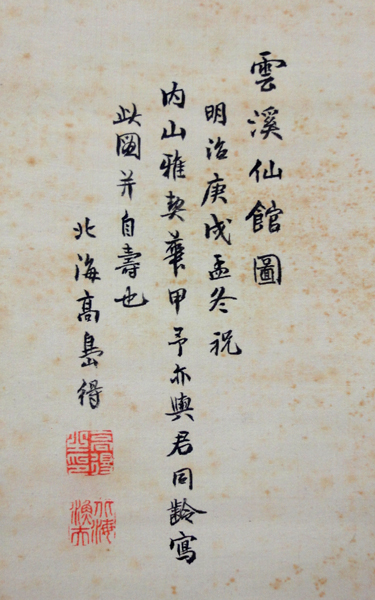 雲溪仙館圖
明治庚戌孟冬祝
内山雅契華甲予亦與君同齡寫
此圖并自壽也
北海高島得
北海漁夫